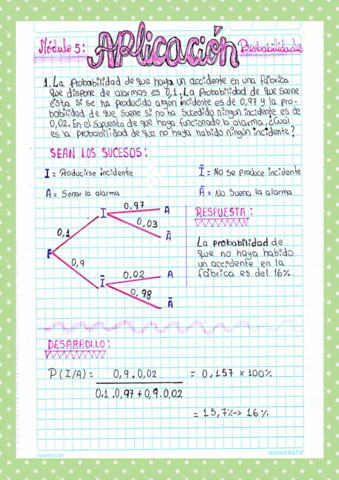 Módulo 5: APlicación Probabilidades
1. La Probabilidad de que haya un accidente en una fábrica
que dispone de alarmas es 0,1. La Probabilidad de que suene
ésta si se ha producido algún incidente es de 0,97 y la pro-
babilidad de que suene si no ha sucedido ningún incidente es de
0,02. En el supuesto de que haya funcionado la alarma. ¿Cual
es la probabilidad de que no haya habido ningún incidente?
SEAN LOS SUCESOS:
I = Producirse incidente
Ī = No se Produce incidente
A = Sonar la alarma
Ā = No Suena la alarma
0,97
I
A
0,1
0,03
Ā
F
0,9
0,02
Ī
A
0,98
Ā
RESPUESTA:
La probabilidad de
que no haya habido
un accidente en la
fábrica es del 16%
DESARROLLO:
P(I/A) = 0,9.0,02 = 0,157 x 100%
0,1.0,97 + 0,9.0,02
= 15,7% -> 16%